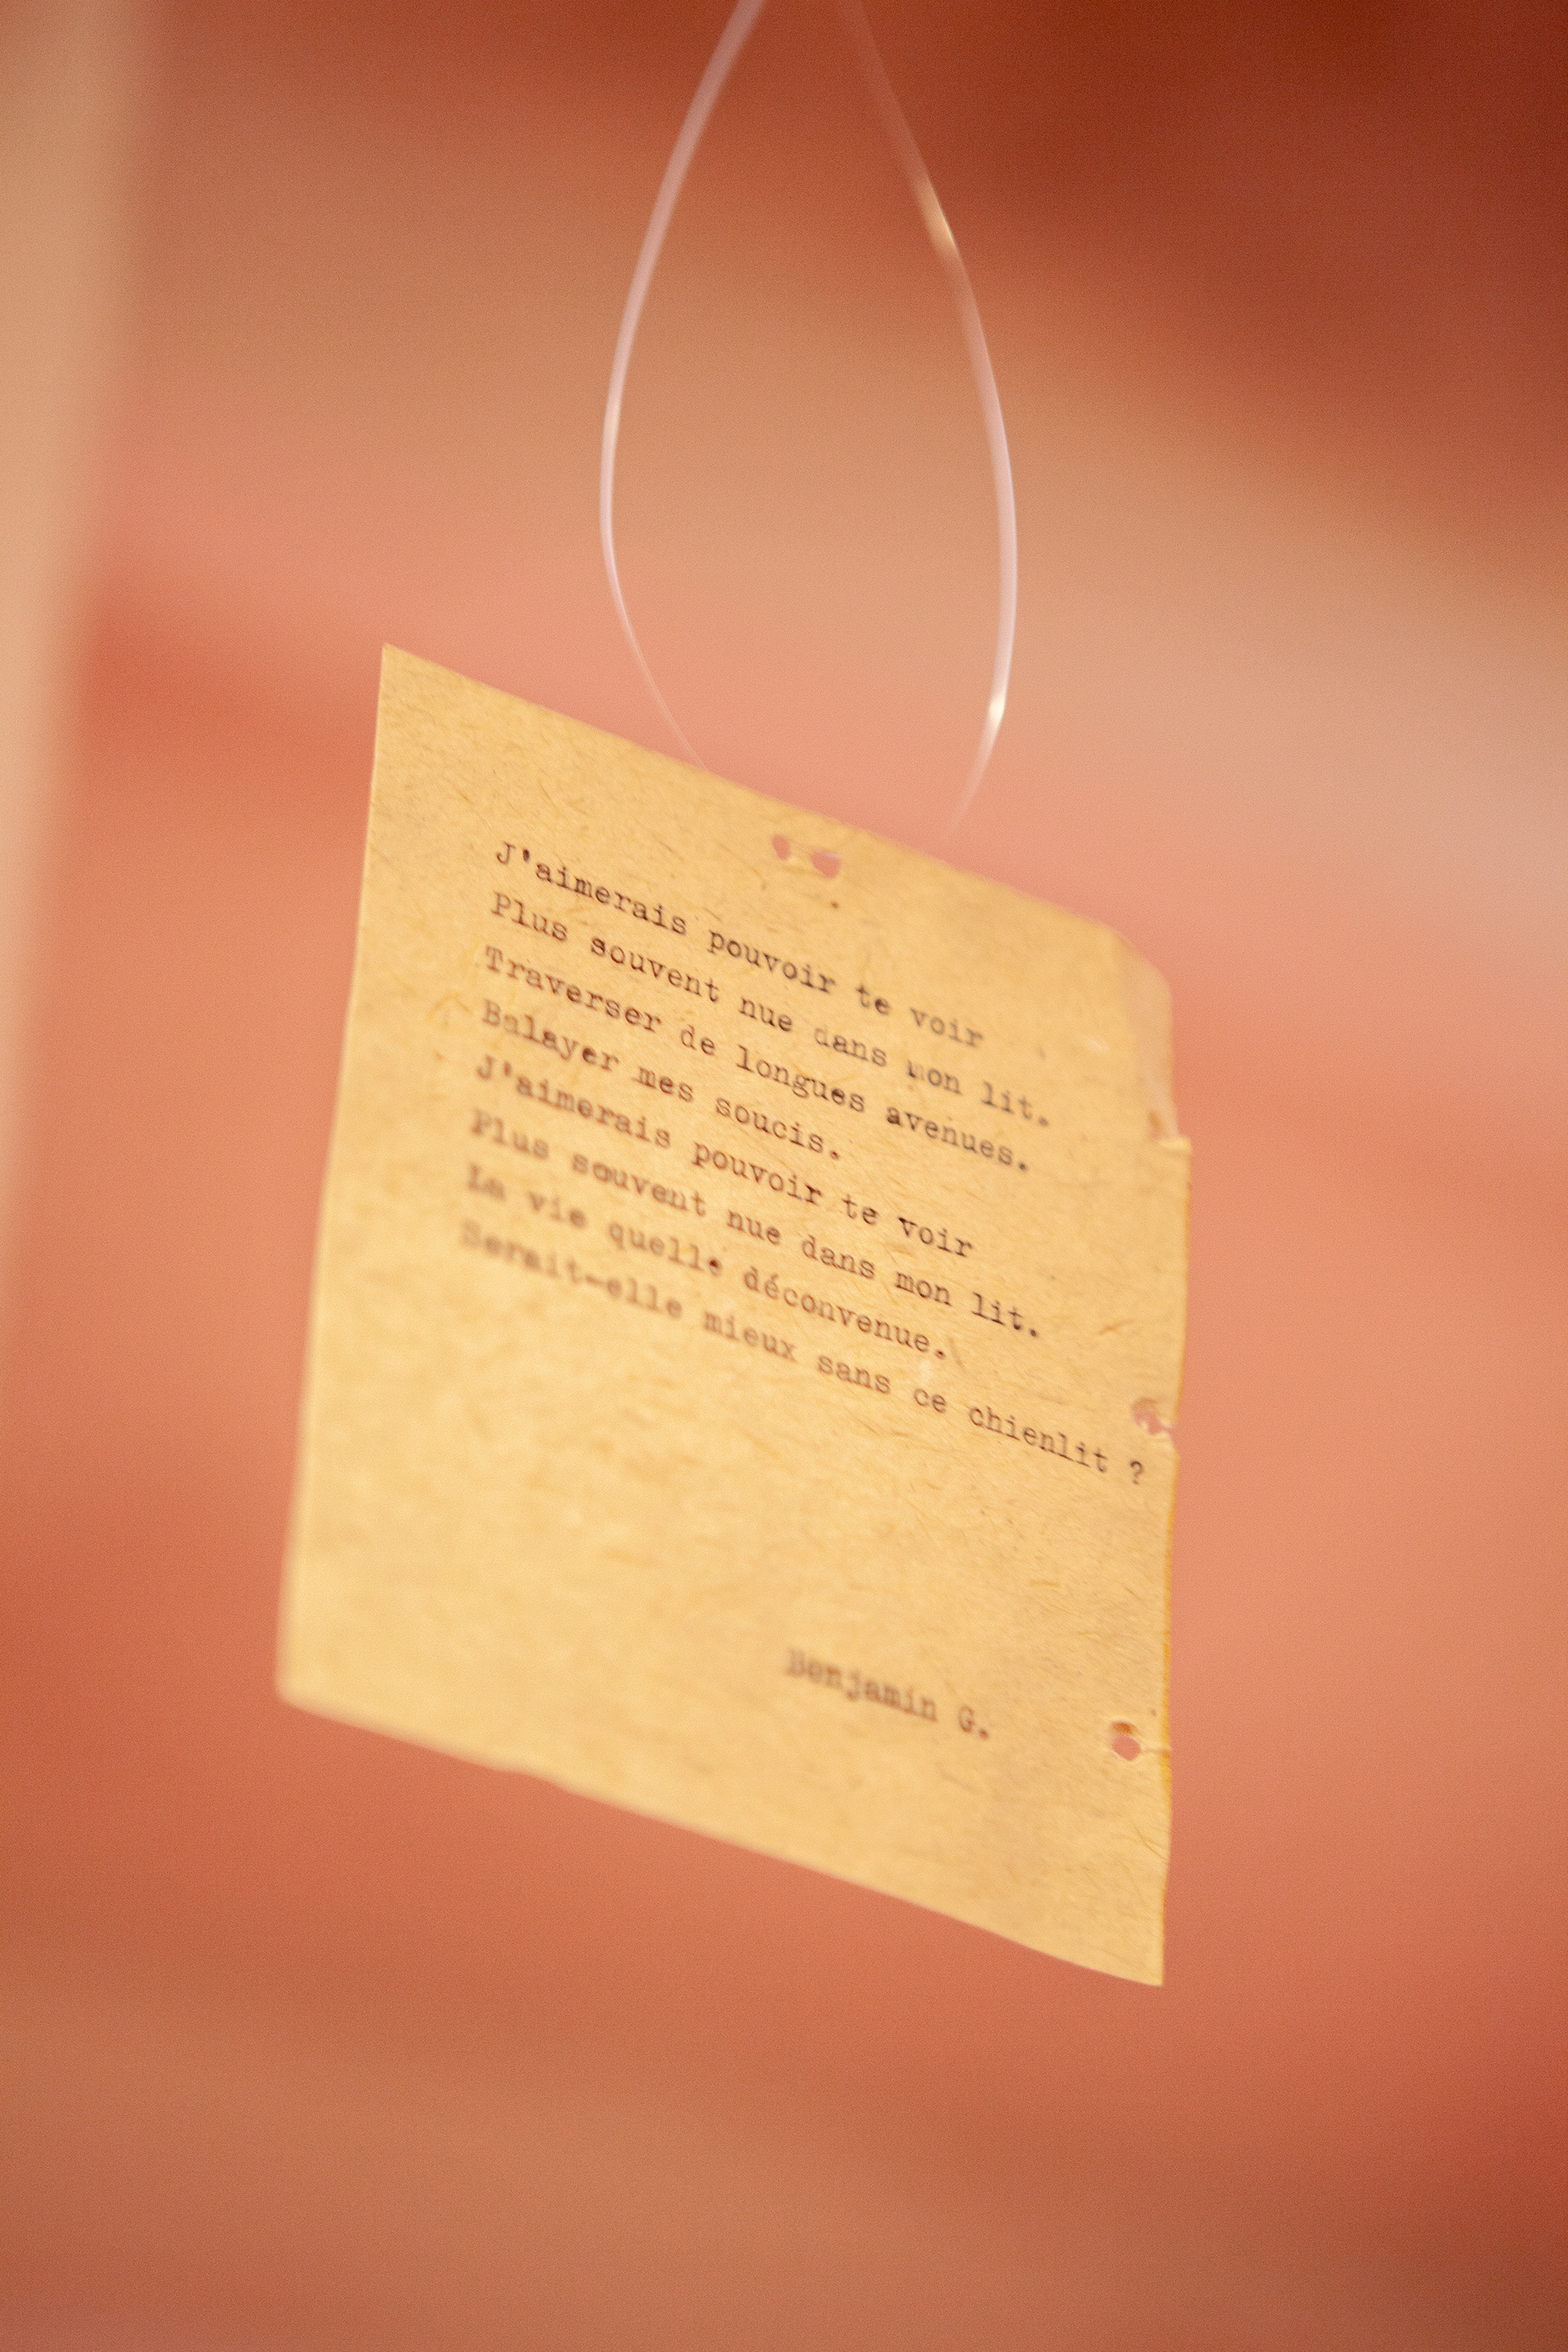 J'aimerais pouvoir te voir
Plus souvent nue dans mon lit.
Traverser de longues avenues.
Balayer mes soucis.
J'aimerais pouvoir te voir
Plus souvent nue dans mon lit.
La vie quelle déconvenue.
Serait-elle mieux sans ce chienlit ?
Benjamin G.